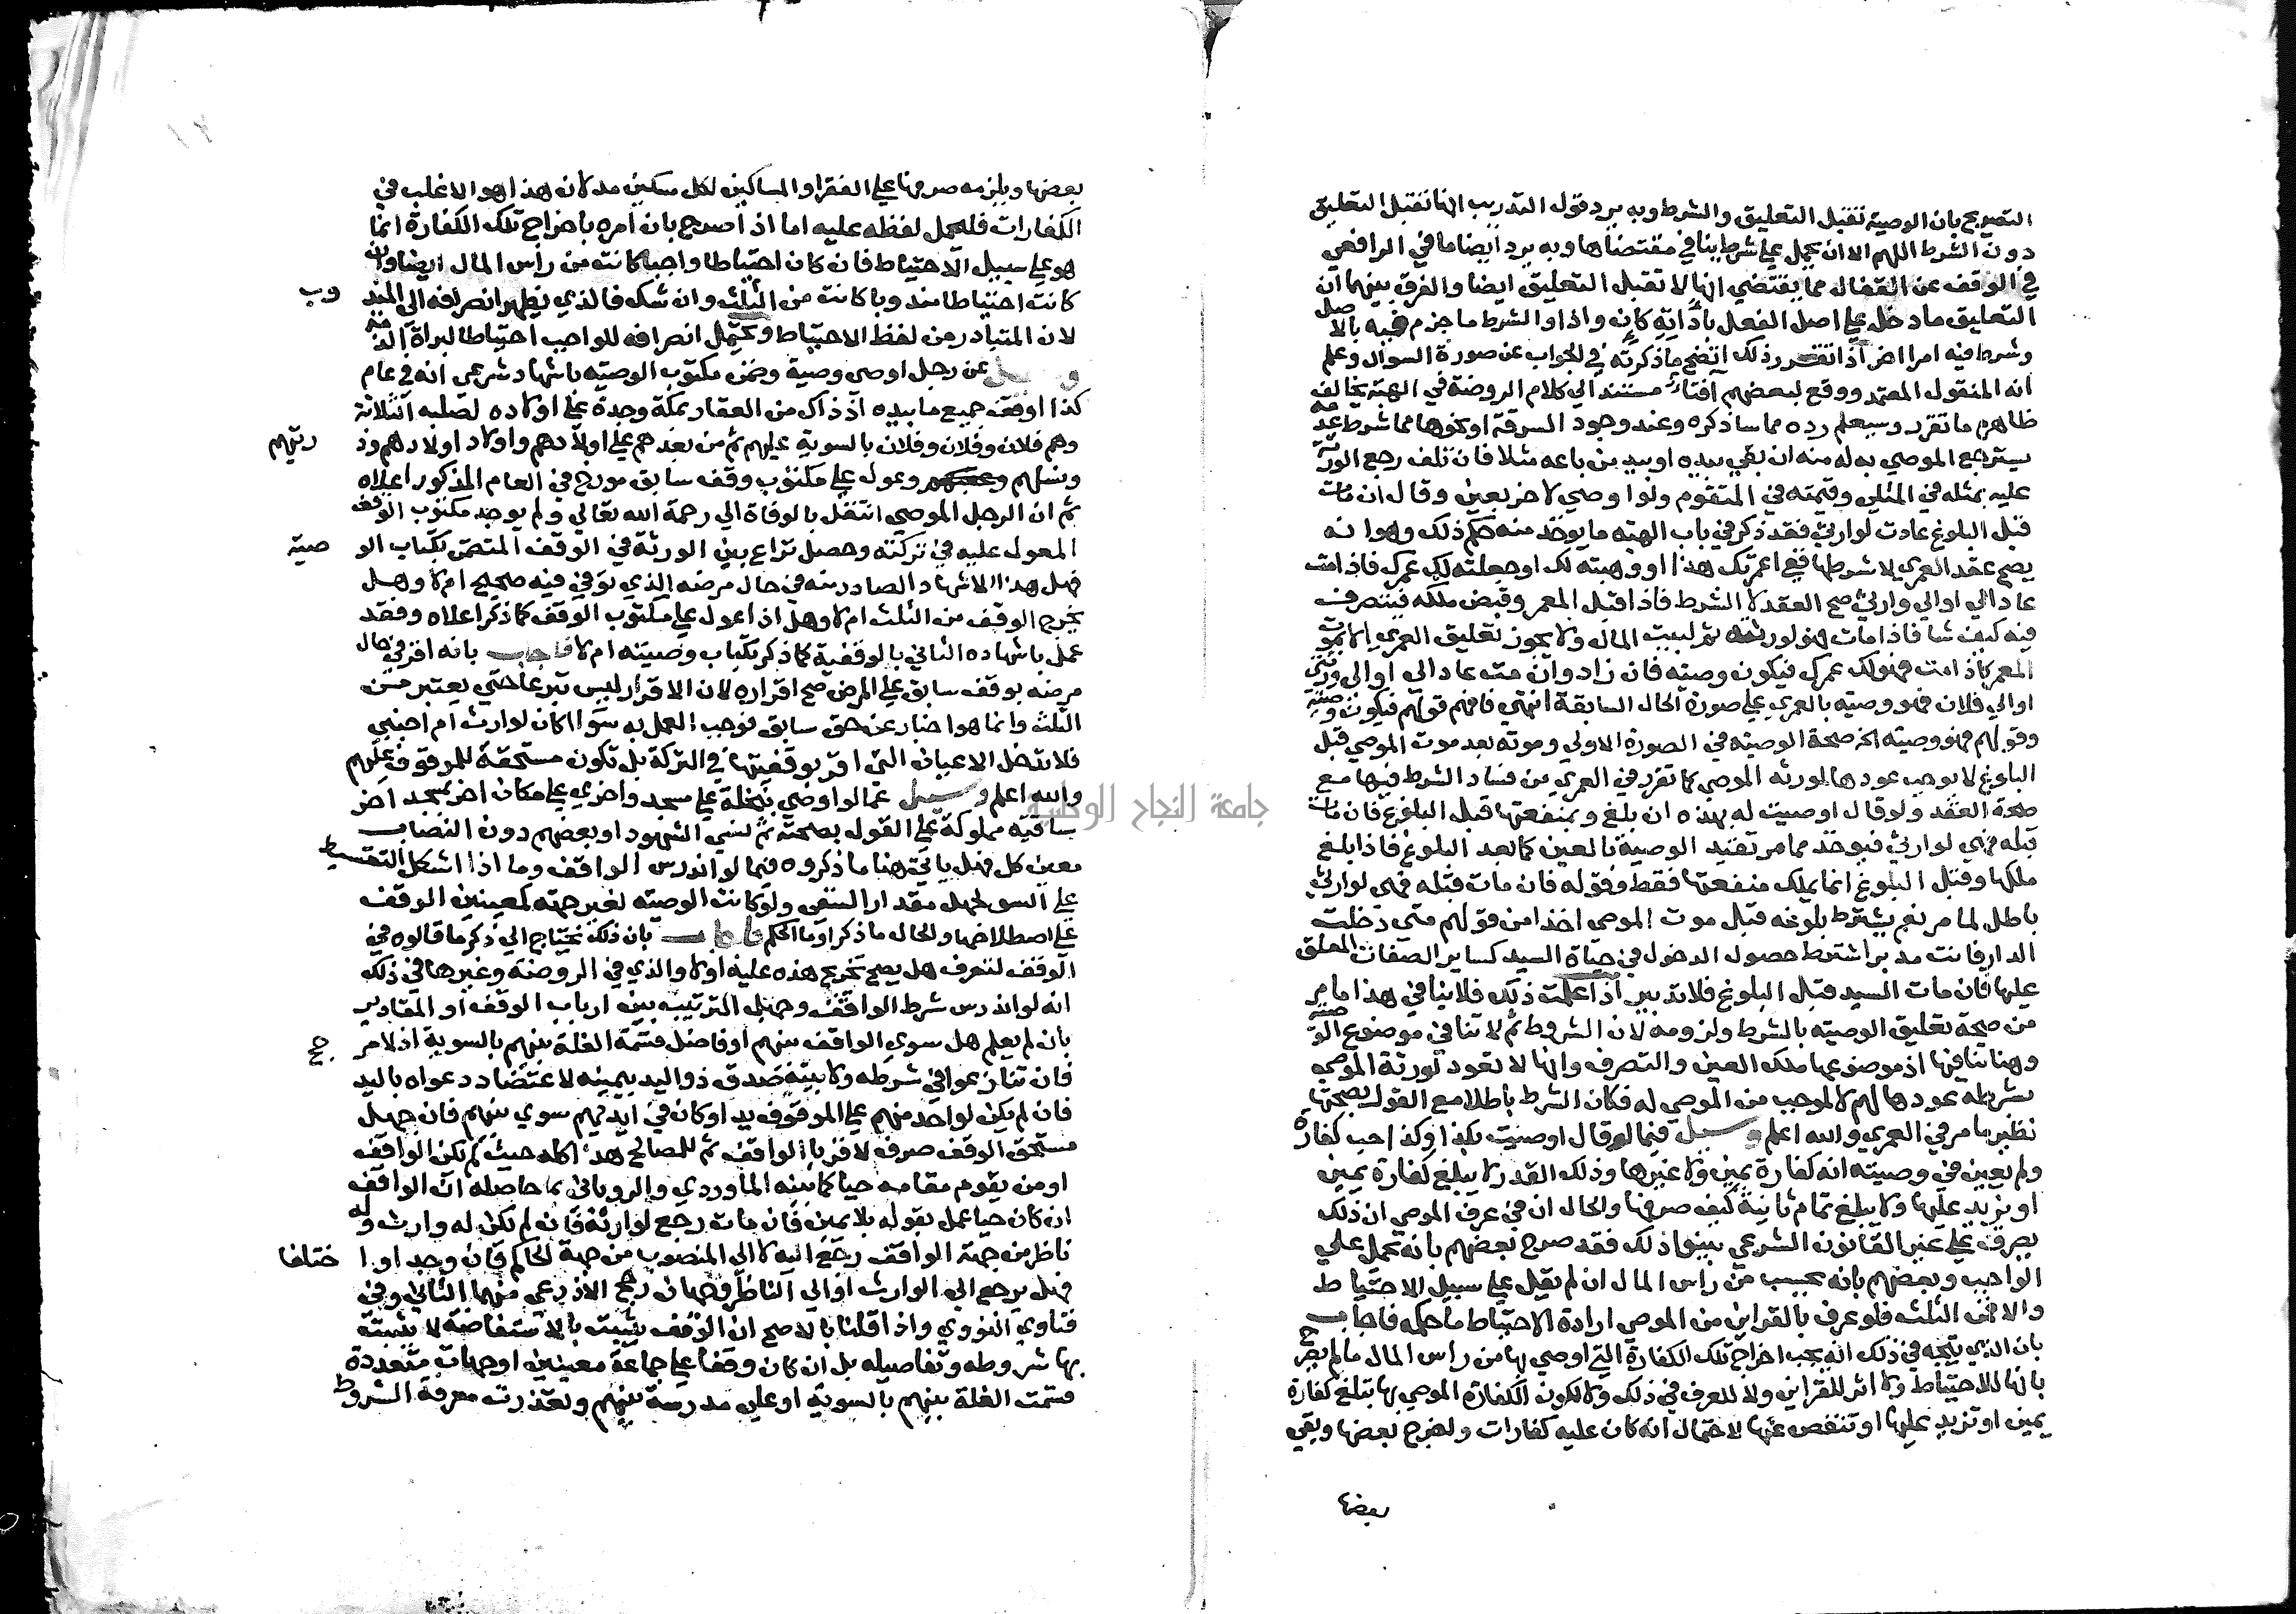 التصريح بان الوصية تقبل التعليق والشرط وبه يرد قول التدريب انها تقبل التعليق
دون الشرط اللهم الا ان يحمل على شرط ينافي مقتضاها وبه يرد ايضا ما في الرافعي
في الوقف عن القفال مما يقتضي انها لا تقبل التعليق ايضا والفرق بينهما ان
التعليق ما دخل على اصل الفعل باداته كان واذا والشرط ما جزم فيه بالاصل
وشرط فيه امرا اخر اذا تقرر ذلك اتضح ما ذكرته في الجواب عن صورة السوال وعلم
انه المنقول المعتمد ووقع لبعضهم افتا مستند الى كلام الروضة في الهبة يخالف
ظاهره ما تقرر وسيعلم رده مما ساذكره وعند وجود السرقة او نحوها مما شرط عدمه
يسترجع الموصى به له منه ان بقي بيده او بيد من باعه مثلا فان تلف رجع الورثة
عليه بمثله في المثلى وقيمته في المتقوم ولو اوصى لاخر بعين وقال ان مات
قبل البلوغ عادت لوارثي فقد ذكر في باب الهبة ما يوخذ منه حكم ذلك وهو انه
يصح عقد العمرى لا شرطها ففي اعمرتك هذا او وهبته لك او جعلته لك عمرك فاذا مت
عاد الي او الى وارثي صح العقد لا الشرط فاذا قبل المعمر وقبض ملكه فيتصرف
فيه كيف شا فاذا مات فهو لورثته ثم لبيت المال ولا يجوز تعليق العمرى الا بموت
المعمر كاذا مت فهو لك عمرك فيكون وصية فان زاد وان مت عاد الي او الى ورثتي
او الى فلان فهو وصية بالعمرى على صورة الحال السابقة انتهى فافهم قولهم فيكون وصية
وقولهم فهو وصية الخ صحة الوصية في الصورة الاولى وموته بعد موت الموصي قبل
البلوغ لا يوجب عودها لورثة الموصي كما تقرر في العمرى من فساد الشرط فيها مع
صحة العقد ولو قال اوصيت له بهذه ان بلغ وبمنفعتها قبل البلوغ فان مات
قبله فهي لوارثي فيوخذ مما مر تقيد الوصية بالعين كما بعد البلوغ فاذا بلغ
ملكها وقبل البلوغ انما يملك منفعتها فقط وقوله فان مات قبله فهي لوارثي
باطل لما مر نعم يشترط بلوغه قبل موت الموصي اخذا من قولهم متى دخلت
الدار فانت مدبر اشترط حصول الدخول في حياة السيد كساير الصفات المعلق
عليها فان مات السيد قبل البلوغ فلا تدبير اذا علمت ذلك فلا ينافي هذا ما مر
من صحة تعليق الوصية بالشرط ولزومه لان الشروط ثم لا تنافي موضوع الوصية
وهنا تنافيها اذ موضوعها ملك العين والتصرف وانها لا تعود لورثة الموصي
بشرطه عودها لهم لا لموجب من الموصى له فكان الشرط باطلا مع القول بصحتها
نظير ما مر في العمرى والله اعلم وسيل فيما لو قال اوصيت بكذا وكذا حب كفارة
ولم يعين في وصيته انه كفارة يمين ولا غيرها وذلك القدر لا يبلغ كفارة يمين
او يزيد عليها ولا يبلغ تمام ثانية كيف صرفها والحال ان في عرف الموصي ان ذلك
يصرف على غير القانون الشرعي بينوا ذلك فقد صرح بعضهم بانه يحمل على
الواجب وبعضهم بانه يحسب من راس المال ان لم يقل على سبيل الاحتياط
والا فمن الثلث فلو عرف بالقراين من الموصي ارادة الاحتياط ما حكمه فاجاب
بان الذي يتجه في ذلك انه يجب اخراج تلك الكفارة التي اوصى بها من راس المال ما لم يصرح
بانها للاحتياط ولا اثر للقراين ولا للعرف في ذلك ولا لكون الكفارة الموصى بها تبلغ كفارة
يمين او تزيد عليها او تنقص عنها لاحتمال انه كان عليه كفارات ولخرج بعضها وبقي
بعضها
بعضها ويلزمه صرفها على الفقرا والمساكين لكل مسكين مد لان هذا هو الاغلب في
الكفارات فليحمل لفظه عليه اما اذا صرح بان امره باخراج تلك الكفارة انما
هو على سبيل الاحتياط فان كان احتياطا واجبا كانت من راس المال ايضا وان
كانت احتياطا مندوبا كانت من الثلث وان شك فالذي يظهر انصرافه الى المندوب
لان المتبادر من لفظ الاحتياط ويحتمل انصرافه للواجب احتياطا لبراة الذمة
وسيل عن رجل اوصى وصية وضمن مكتوب الوصية باشهاد شرعي انه في عام
كذا اوقف جميع ما بيده اذ ذاك من العقار بمكة وجدة على اولاده لصلبه الثلاثة
وهم فلان وفلان وفلان بالسوية عليهم ثم من بعدهم على اولادهم واولاد اولادهم وذريتهم
ونسلهم وعول على مكتوب وقف سابق مورخ في العام المذكور اعلاه
ثم ان الرجل الموصي انتقل بالوفاة الى رحمة الله تعالى ولم يوجد مكتوب الوقف
المعول عليه في تركته وحصل نزاع بين الورثة في الوقف المتضمن بكتاب الوصية
فهل هذا الاشهاد الصادر منه في حال مرضه الذي توفي فيه صحيح ام لا وهل
يخرج الوقف من الثلث ام لا وهل اذا عول على مكتوب الوقف كما ذكر اعلاه وفقد
عمل باشهاده الثاني بالوقفية كما ذكر بكتاب وصيته ام لا فاجاب بانه اقر في حال
مرضه بوقف سابق على المرض صح اقراره لان الاقرار ليس تبرعا حتى يعتبر من
الثلث وانما هو اخبار عن حق سابق فوجب العمل به سوا اكان لوارث ام اجنبي
فلا تدخل الاعيان التي اقر بوقفيتها في التركة بل تكون مستحقة للموقوف عليهم
والله اعلم وسيل عما لو اوصى بنخلة على مسجد واخرى على مكان اخر لمسجد اخر
ساقية مملوكة على القول بصحته ثم نسي الشهود او بعضهم دون النصاب
معين كل فهل ياتي هنا ما ذكروه فيما لو اندرس الواقف وما اذا اشكل التقسيط
على السو لجهل مقدار السقي ولو كانت الوصية لغير جهة لمعينين الوقف
على اصطلاحها والحال ما ذكر او ما الحكم فاجاب بان ذلك يحتاج الى ذكر ما قالوه في
الوقف لنعرف هل يصح تخريج هذه عليه او لا والذي في الروضة وغيرها في ذلك
انه لو اندرس شرط الواقف وجهل الترتيب بين ارباب الوقف او المقادير
بان لم يعلم هل سوى الواقف بينهم او فاضل قسمت الغلة بينهم بالسوية اذ لا مرجح
فان تنازعوا في شرطه ولا بينة صدق ذو اليد بيمينه لاعتضاد دعواه باليد
فان لم يكن لواحد منهم على الموقوف يد او كان في ايديهم سوي بينهم فان جهل
مستحق الوقف صرف لاقربا الواقف ثم للمصالح هذا كله حيث لم يكن الواقف
او من يقوم مقامه حيا كما بينه الماوردي والروياني بما حاصله ان الواقف
ان كان حيا عمل بقوله بلا يمين فان مات رجع لوارثه فان لم يكن له وارث وله
ناظر من جهة الواقف رجع اليه لا الى المنصوب من جهة الحاكم فان وجد او اختلفا
فهل يرجع الى الوارث او الى الناظر وجهان رجح الاذرعي منهما الثاني وفي
فتاوي النووي واذا قلنا بالاصح ان الوقف يثبت بالاستفاضة لا يثبت
بها شروطه وتفاصيله بل ان كان وقفا على جماعة معينين او جهات متعددة
قسمت الغلة بينهم بالسوية او على مدرسة بينهم وتعذرت معرفة الشروط
جامعة النجاح الوطنية